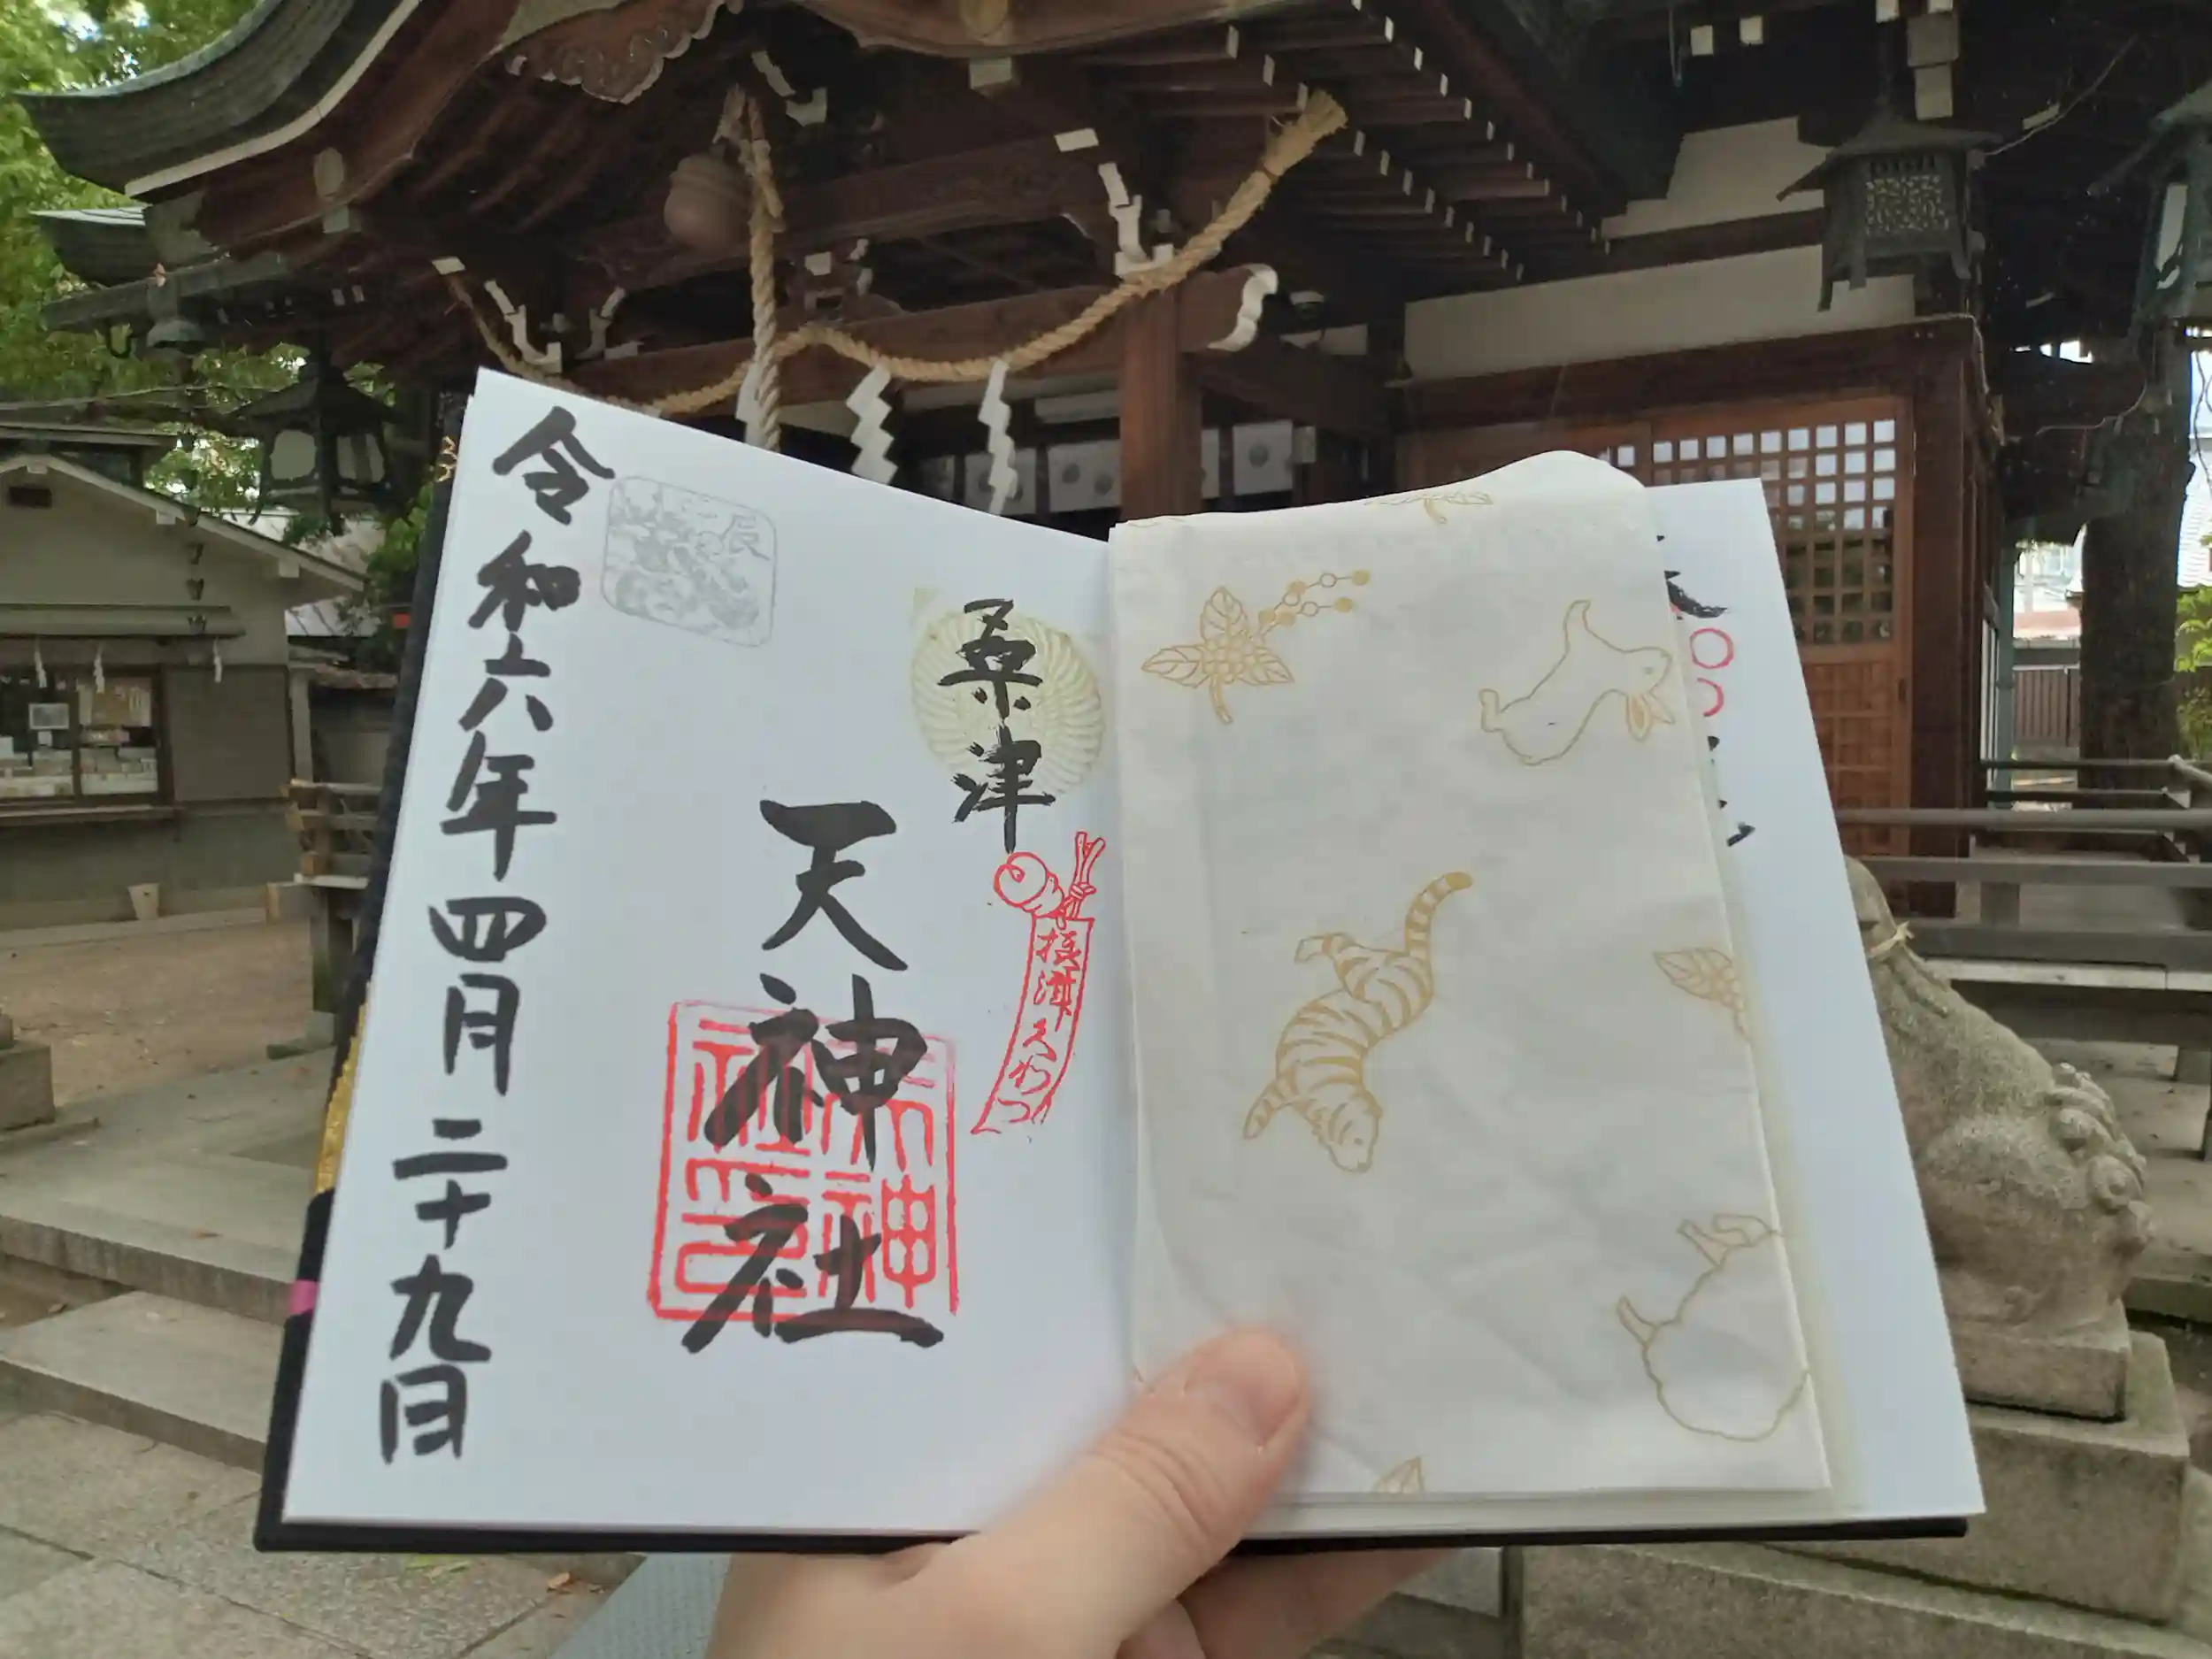 桑津
天神社
令和六年四月二十九日
辰
摂津くわつ
天神
社印